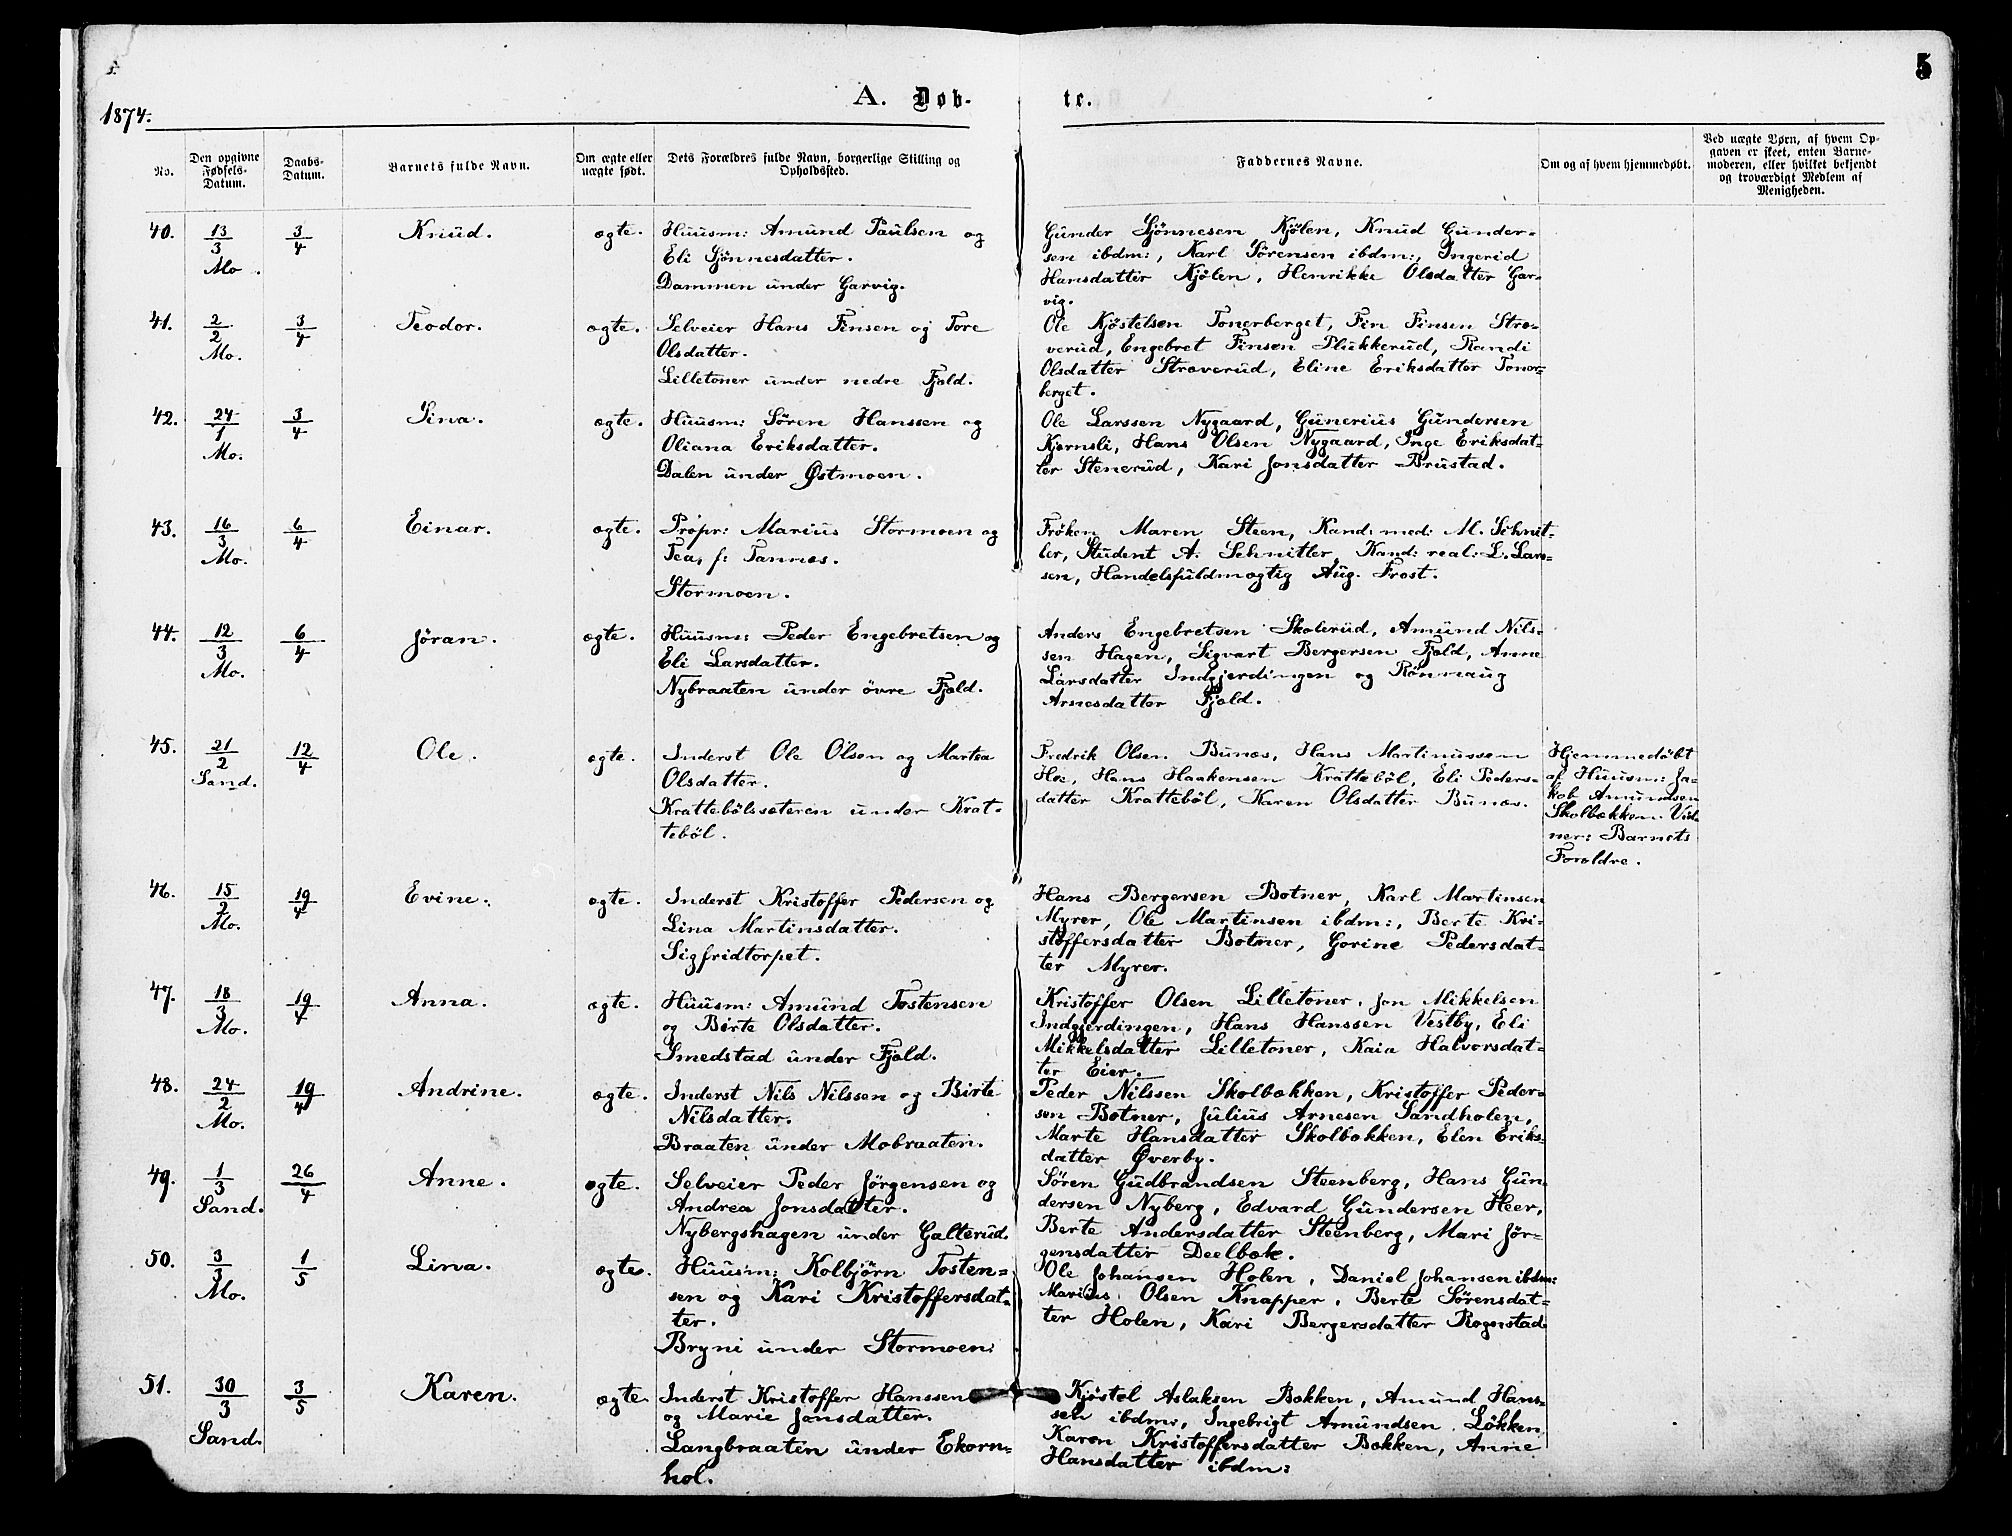 5
1874.
A. Døb-
te.
No.
Den opgivne Fødsels-Datum.
Daabs-Datum.
Barnets fulde Navn.
Om ægte eller uægte født.
Dets Forældres fulde Navn, borgerlige Stilling og Opholdssted.
Faddernes Navne.
Om og af hvem hjemmedøbt.
Ved uægte Børn, af hvem Op-
gaven er skeet, enten Barne-
moderen, eller hvilket bekjendt
og troværdigt Medlem af
Menigheden.
40. 13/3 Mo. 3/4 Knud. ægte.
Huusm: Amund Paulsen og
Eli Gjönnesdatter.
Dammen under Garvig.
Gunder Gjönnesen Kjölen, Knud Gunder-
sen ibdm:, Karl Sörensen ibdm:, Ingerid
Hansdatter Kjölen, Henrikke Olsdatter Gar-
vig.
41. 2/2 Mo. 3/4 Teodor. ægte.
Selveier Hans Finsen og Tore
Olsdatter.
Lilletoner under nedre Fjeld.
Ole Kjöstelsen Tonerberget, Fin Finsen Stræ-
verud, Engebret Finsen Plukkerud, Randi
Olsdatter Stræverud, Eline Eriksdatter Toner-
berget.
42. 24/1 Mo. 3/4 Sina. ægte.
Huusm: Sören Hanssen og
Oliana Eriksdatter.
Dalen under Østmoen.
Ole Larssen Nygaard, Gunerius Gundersen
Kjernsli, Hans Olsen Nygaard, Inge Eriksdat-
ter Stenerud, Kari Jonsdatter Brustad.
43. 16/3 Mo. 6/4 Einar. ægte.
Propr: Marius Stormoen og
Tea, f: Tannæs.
Stormoen.
Fröken Maren Steen, Kand: med: M. Schnit-
ler, Student A. Schnitler, Kand: real: L. Lars-
sen, Handelsfuldmægtig Aug. Frost.
44. 12/3 Mo. 6/4 Jöran. ægte.
Huusm: Peder Engebretsen og
Eli Larsdatter.
Nybraaten under övre Fjeld.
Anders Engebretsen Skolerud, Amund Nils-
sen Hagen, Sigvart Bergersen Fjeld, Anne
Larsdatter Indgjerdingen og Rönnaug
Arnesdatter Fjeld.
45. 21/2 Sand. 12/4 Ole. ægte.
Inderst Ole Olsen og Martea
Olsdatter.
Krattebölssæteren under Krat-
teböl.
Fredrik Olsen Bunæs, Hans Martinussen
Hoe, Hans Haakensen Kratteböl, Eli Peders-
datter Kratteböl, Karen Olsdatter Bunæs.
Hjemmedöbt
af Huusm: Ja-
kob Amundsen
Skolbækken. Vid-
ner: Barnets
Forældre.
46. 15/2 Mo. 19/4 Evine. ægte.
Inderst Kristoffer Pedersen og
Lina Martinsdatter.
Sigfridtorpet.
Hans Bergersen Botner, Karl Martinsen
Myrer, Ole Martinsen ibdm:, Berte Kri-
stoffersdatter Botner, Gorine Pedersdat-
ter Myrer.
47. 18/3 Mo. 19/4 Anna. ægte.
Huusm: Amund Tostensen
og Birte Olsdatter.
Smedstad under Fjeld.
Kristoffer Olsen Lilletoner, Jon Mikkelsen
Indgjerdingen, Hans Hanssen Vestby, Eli
Mikkelsdatter Lilletoner, Kaia Halvorsdat-
ter Eier.
48. 24/2 Mo. 19/4 Andrine. ægte.
Inderst Nils Nilssen og Birte
Nilsdatter.
Braaten under Mobraaten.
Peder Nilssen Skolbækken, Kristoffer Peder-
sen Botner, Julius Arnesen Sandholen,
Marte Hansdatter Skolbækken, Elen Eriks-
datter Øverby.
49. 1/3 Sand. 26/4 Anne. ægte.
Selveier Peder Jörgensen og
Andrea Jonsdatter.
Nybergshagen under Galterud.
Sören Gudbrandsen Steenberg, Hans Gun-
dersen Nyberg, Edvard Gundersen Heer,
Berte Andersdatter Steenberg, Mari Jör-
gensdatter Deelbæk.
50. 3/3 Mo. 1/5 Lina. ægte.
Huusm: Kolbjörn Tosten-
sen og Kari Kristoffersdat-
ter.
Bryni under Stormoen.
Ole Johansen Holen, Daniel Johansen ibdm:
Marius Olsen Knapper, Berte Sörensdat-
ter Holen, Kari Bergersdatter Rogenstad.
51. 30/3 Sand. 3/5 Karen. ægte
Inderst Kristoffer Hanssen
og Marie Jonsdatter.
Langbraaten under Ekorn-
hol.
Kjöstel Aslaksen Bækken, Amund Hans-
sen ibdm:, Ingebrigt Amundsen Lökken,
Karen Kristoffersdatter Bækken, Anne
Hansdatter ibdm: